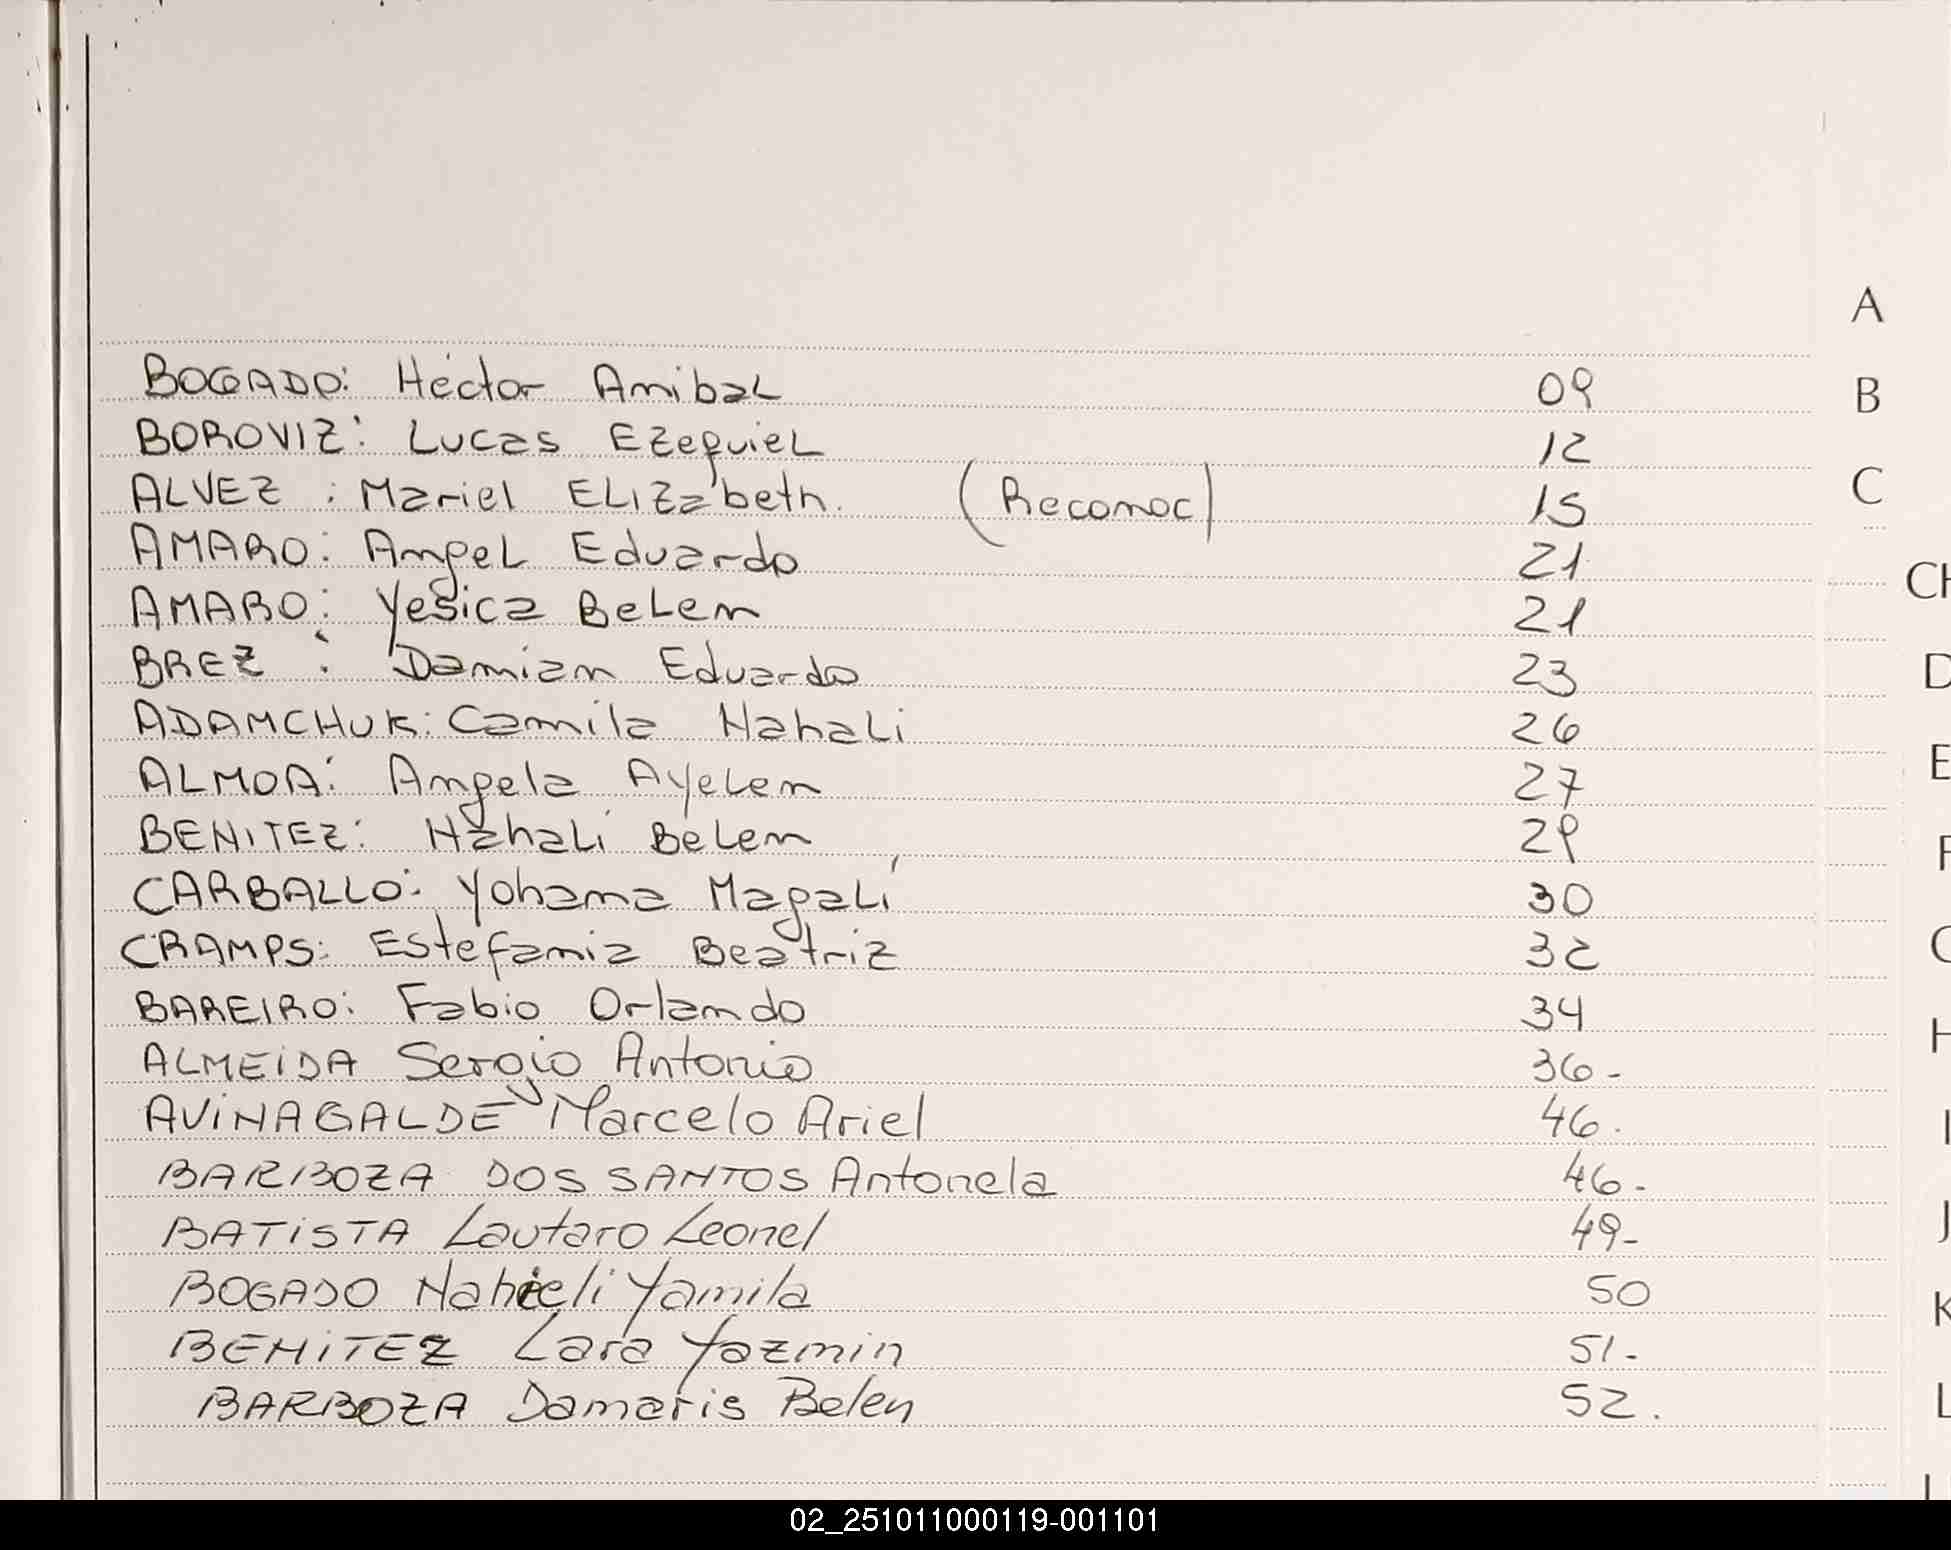 BOGADO: Héctor Anibal 09
BOROVIZ: Lucas Ezequiel 12
ALVEZ : Mariel Elizabeth. (Reconoc) 15
AMARO: Angel Eduardo 21
AMARO: Yesica Belen 21
BREZ : Damian Eduardo 23
ADAMCHUK: Camila Nahali 26
ALMOA: Angela Ayelen 27
BENITEZ: Nahali Belen 29
CARBALLO: Yohana Magalí 30
CRAMPS: Estefania Beatriz 32
BAREIRO: Fabio Orlando 34
ALMEIDA Sergio Antonio 36-
AVINAGALDE Marcelo Ariel 46.
BARBOZA DOS SANTOS Antonela 46-
BATISTA Lautaro Leonel 49-
BOGADO Nahieli Yamila 50
BENITEZ Lara Yazmin 51-
BARBOZA Damaris Belen 52.
A
B
C
CH
D
E
F
H
I
J
K
L
02_251011000119-001101